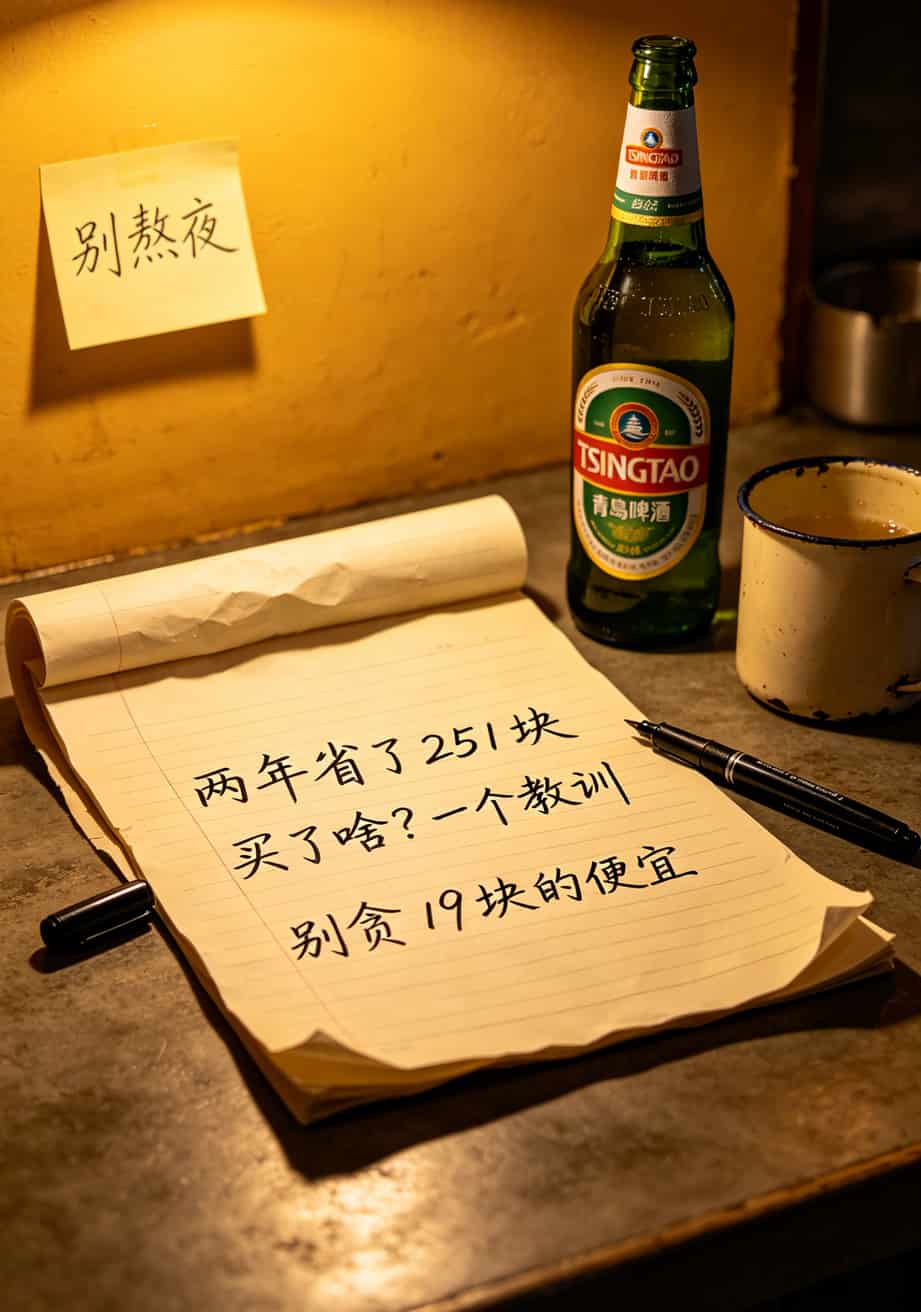 别熬夜
TSINGTAO
TSINGTAO
青岛啤酒
两年省了251块
买了啥?一个教训
别贪19块的便宜